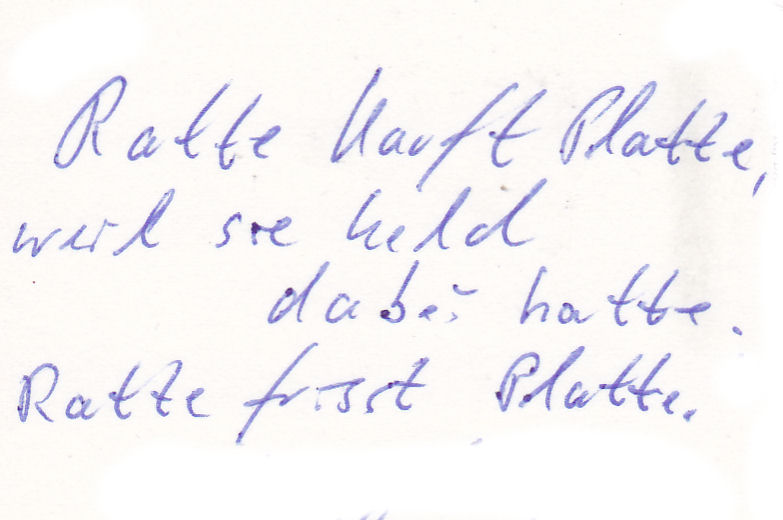 Ratte kauft Platte,
weil sie Geld
dabei hatte.
Ratte frisst Platte.